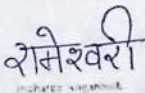 रामेश्वरी